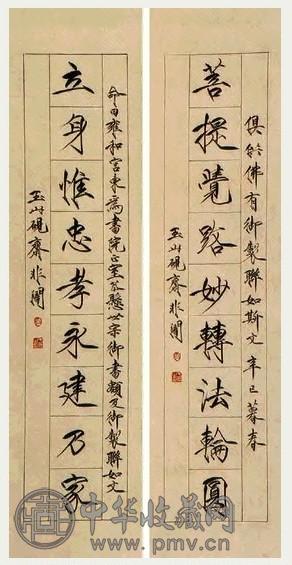 俱佛有御製聯如斯文 辛巳暮春
菩提覺路妙轉法輪圓
玉山硯齋非闇
命曰雍和宮東為書院正室懸世宗御書額及御製聯如文
立身惟忠孝永建乃家
玉山硯齋非闇
中华收藏网
www.pmv.cn